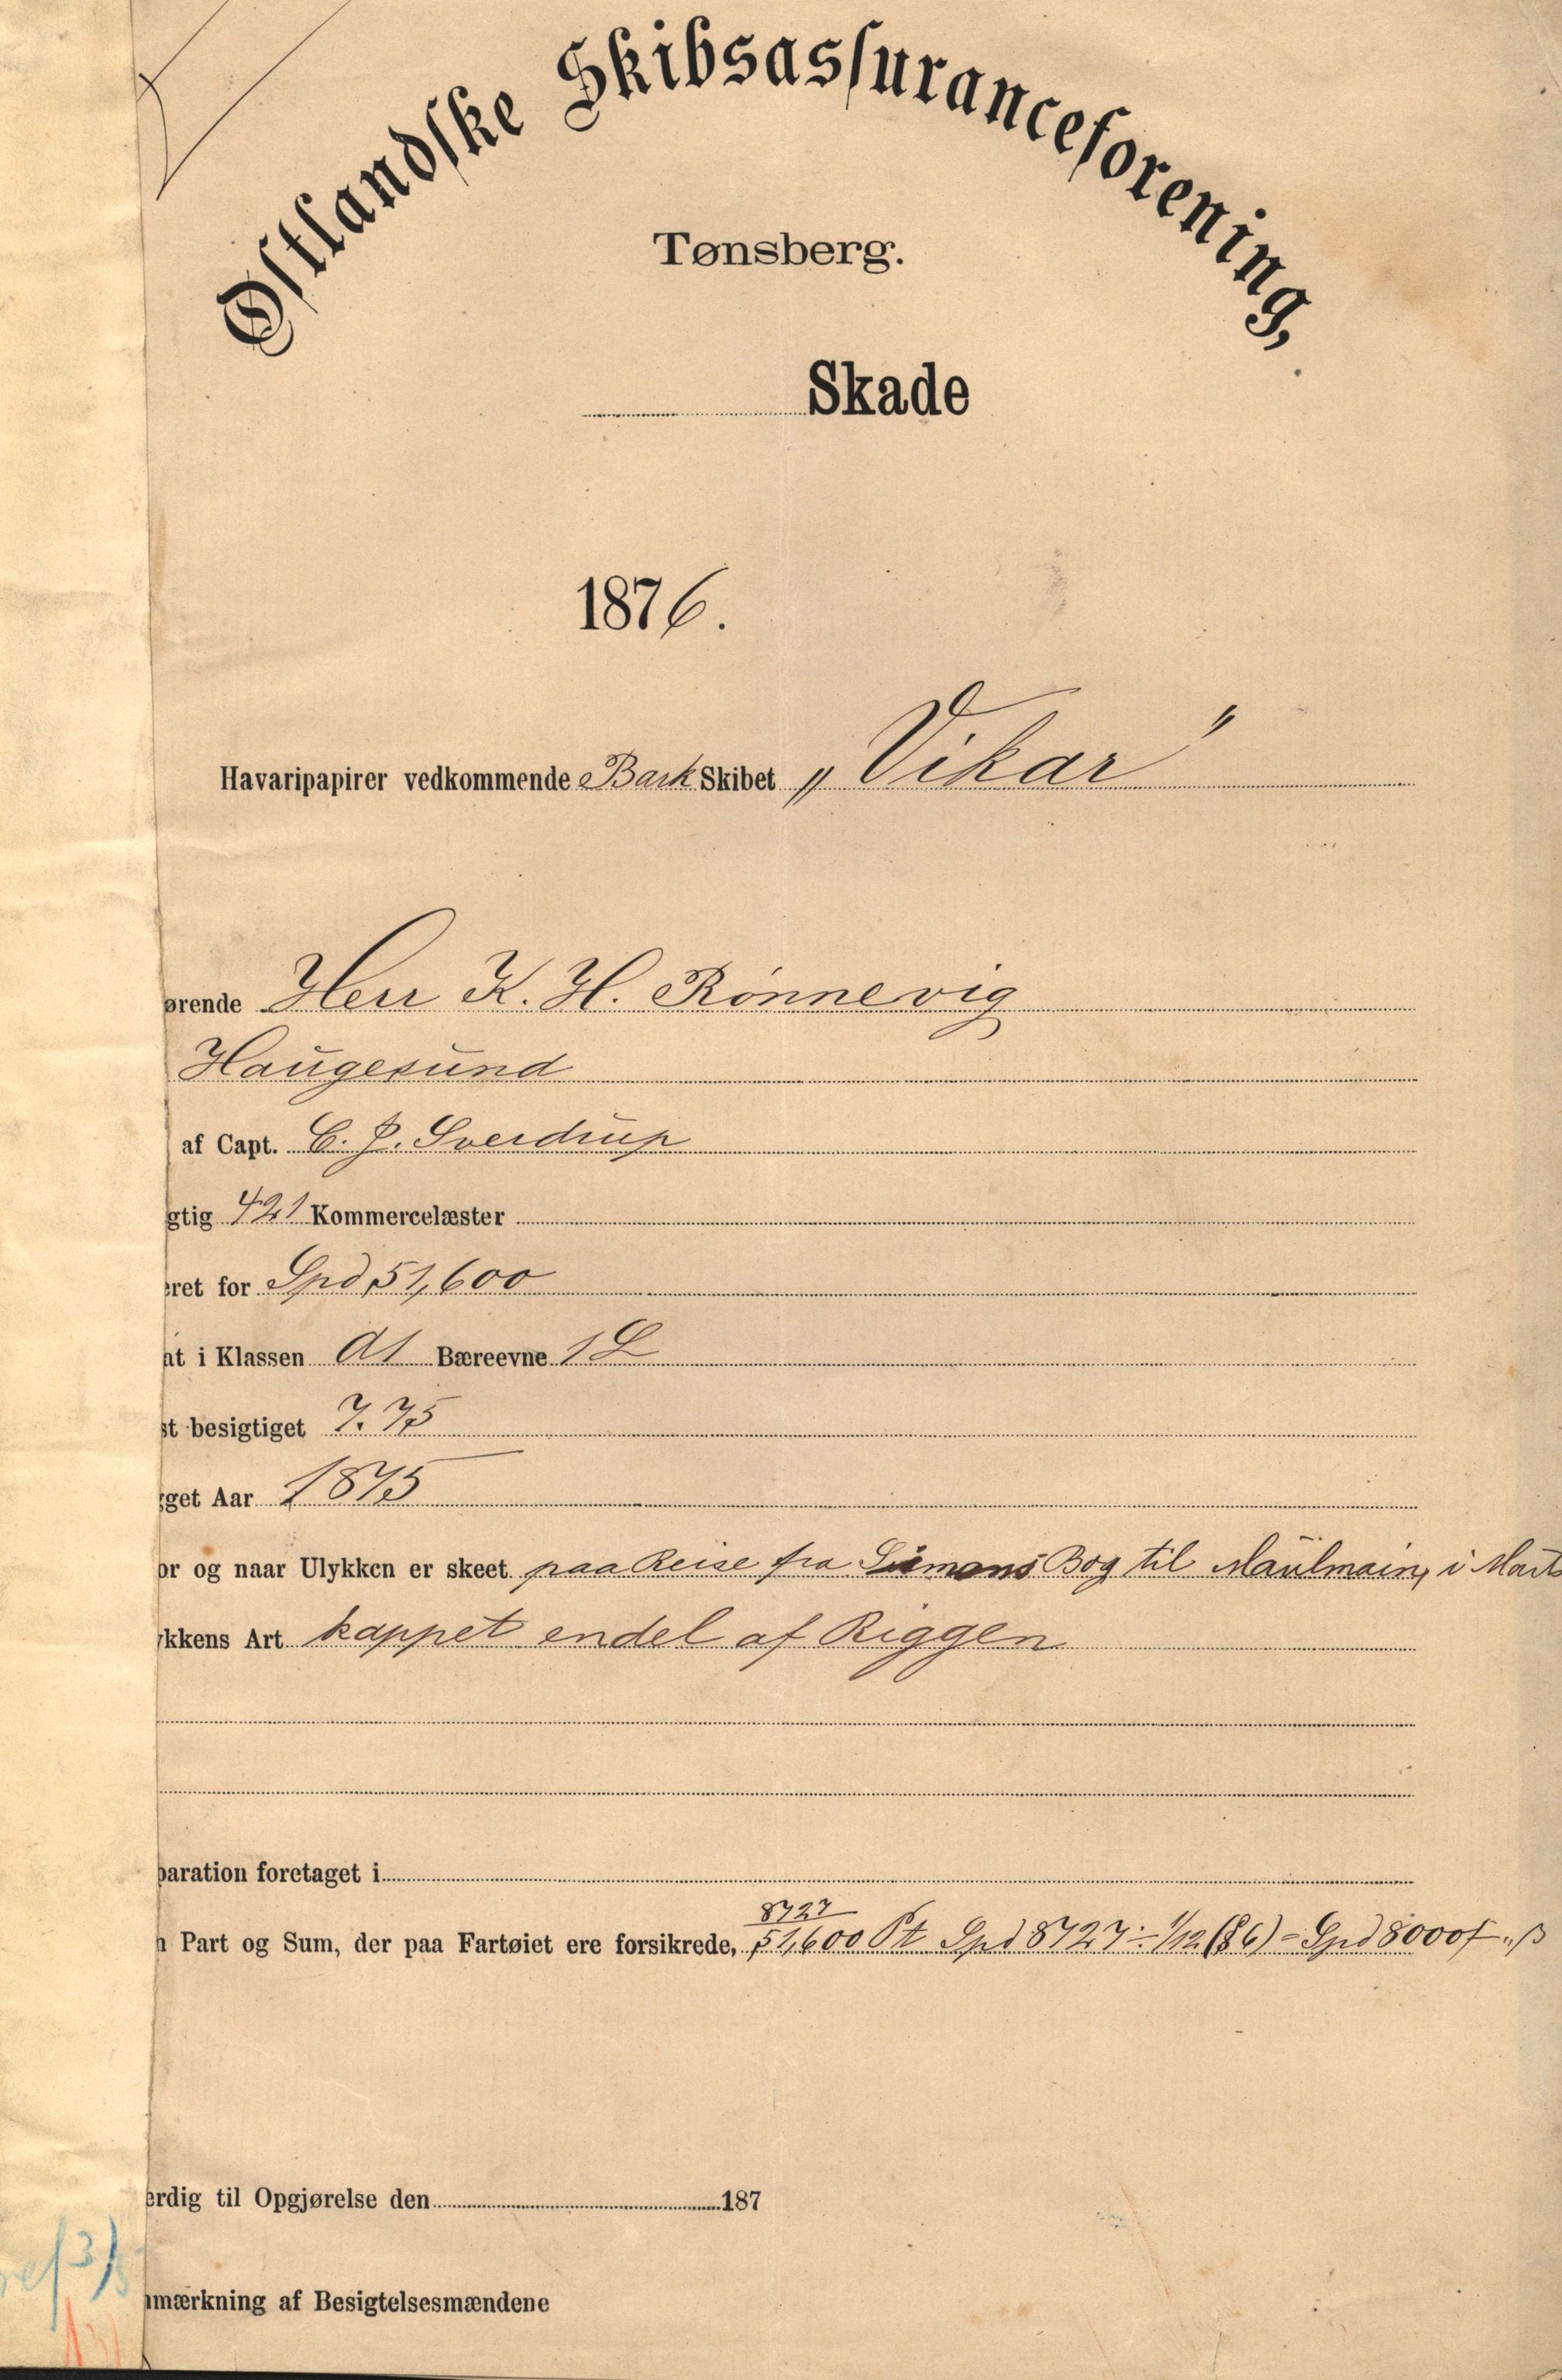 Østlandske Skibsassuranceforening,
Tønsberg.
Skade
1876.
Havaripapirer vedkommende Bark Skibet „Vikar"
ørende Herr K. H. Rönnevig
Haugesund
af Capt. C. J. Sverdrup
gtig 421 Kommercelæster
eret for Spd 51,600
at i Klassen A1 Bæreevne 1 L
st besigtiget 7. 75
gget Aar 1875
or og naar Ulykken er skeet paa Reise fra Simons Bog til Maulmain, i Marts
ykkens Art kappet endel af Riggen
paration foretaget i
8727
n Part og Sum, der paa Fartøiet ere forsikrede, 51,600 Pt Spd 8727 ÷ 1/12 (§ 6) = Spd 8000
erdig til Opgjørelse den 187
nmærkning af Besigtelsesmændene